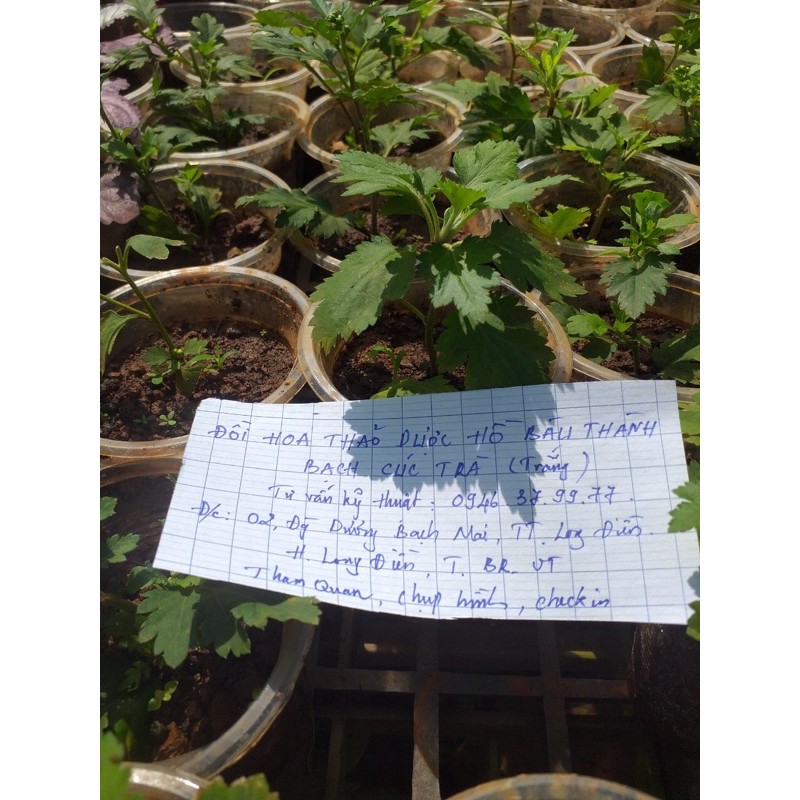 ĐỒI HOA THẢO DƯỢC HỒ BÀU THÀNH
BẠCH CÚC TRÀ (Trắng)
Tư vấn kỹ thuật: 0946 37.99.77.
Đ/c: 02, Đg Dương Bạch Mai, TT. Long Điền.
H. Long Điền, T. BR. VT
Tham Quan, chụp hình, check in